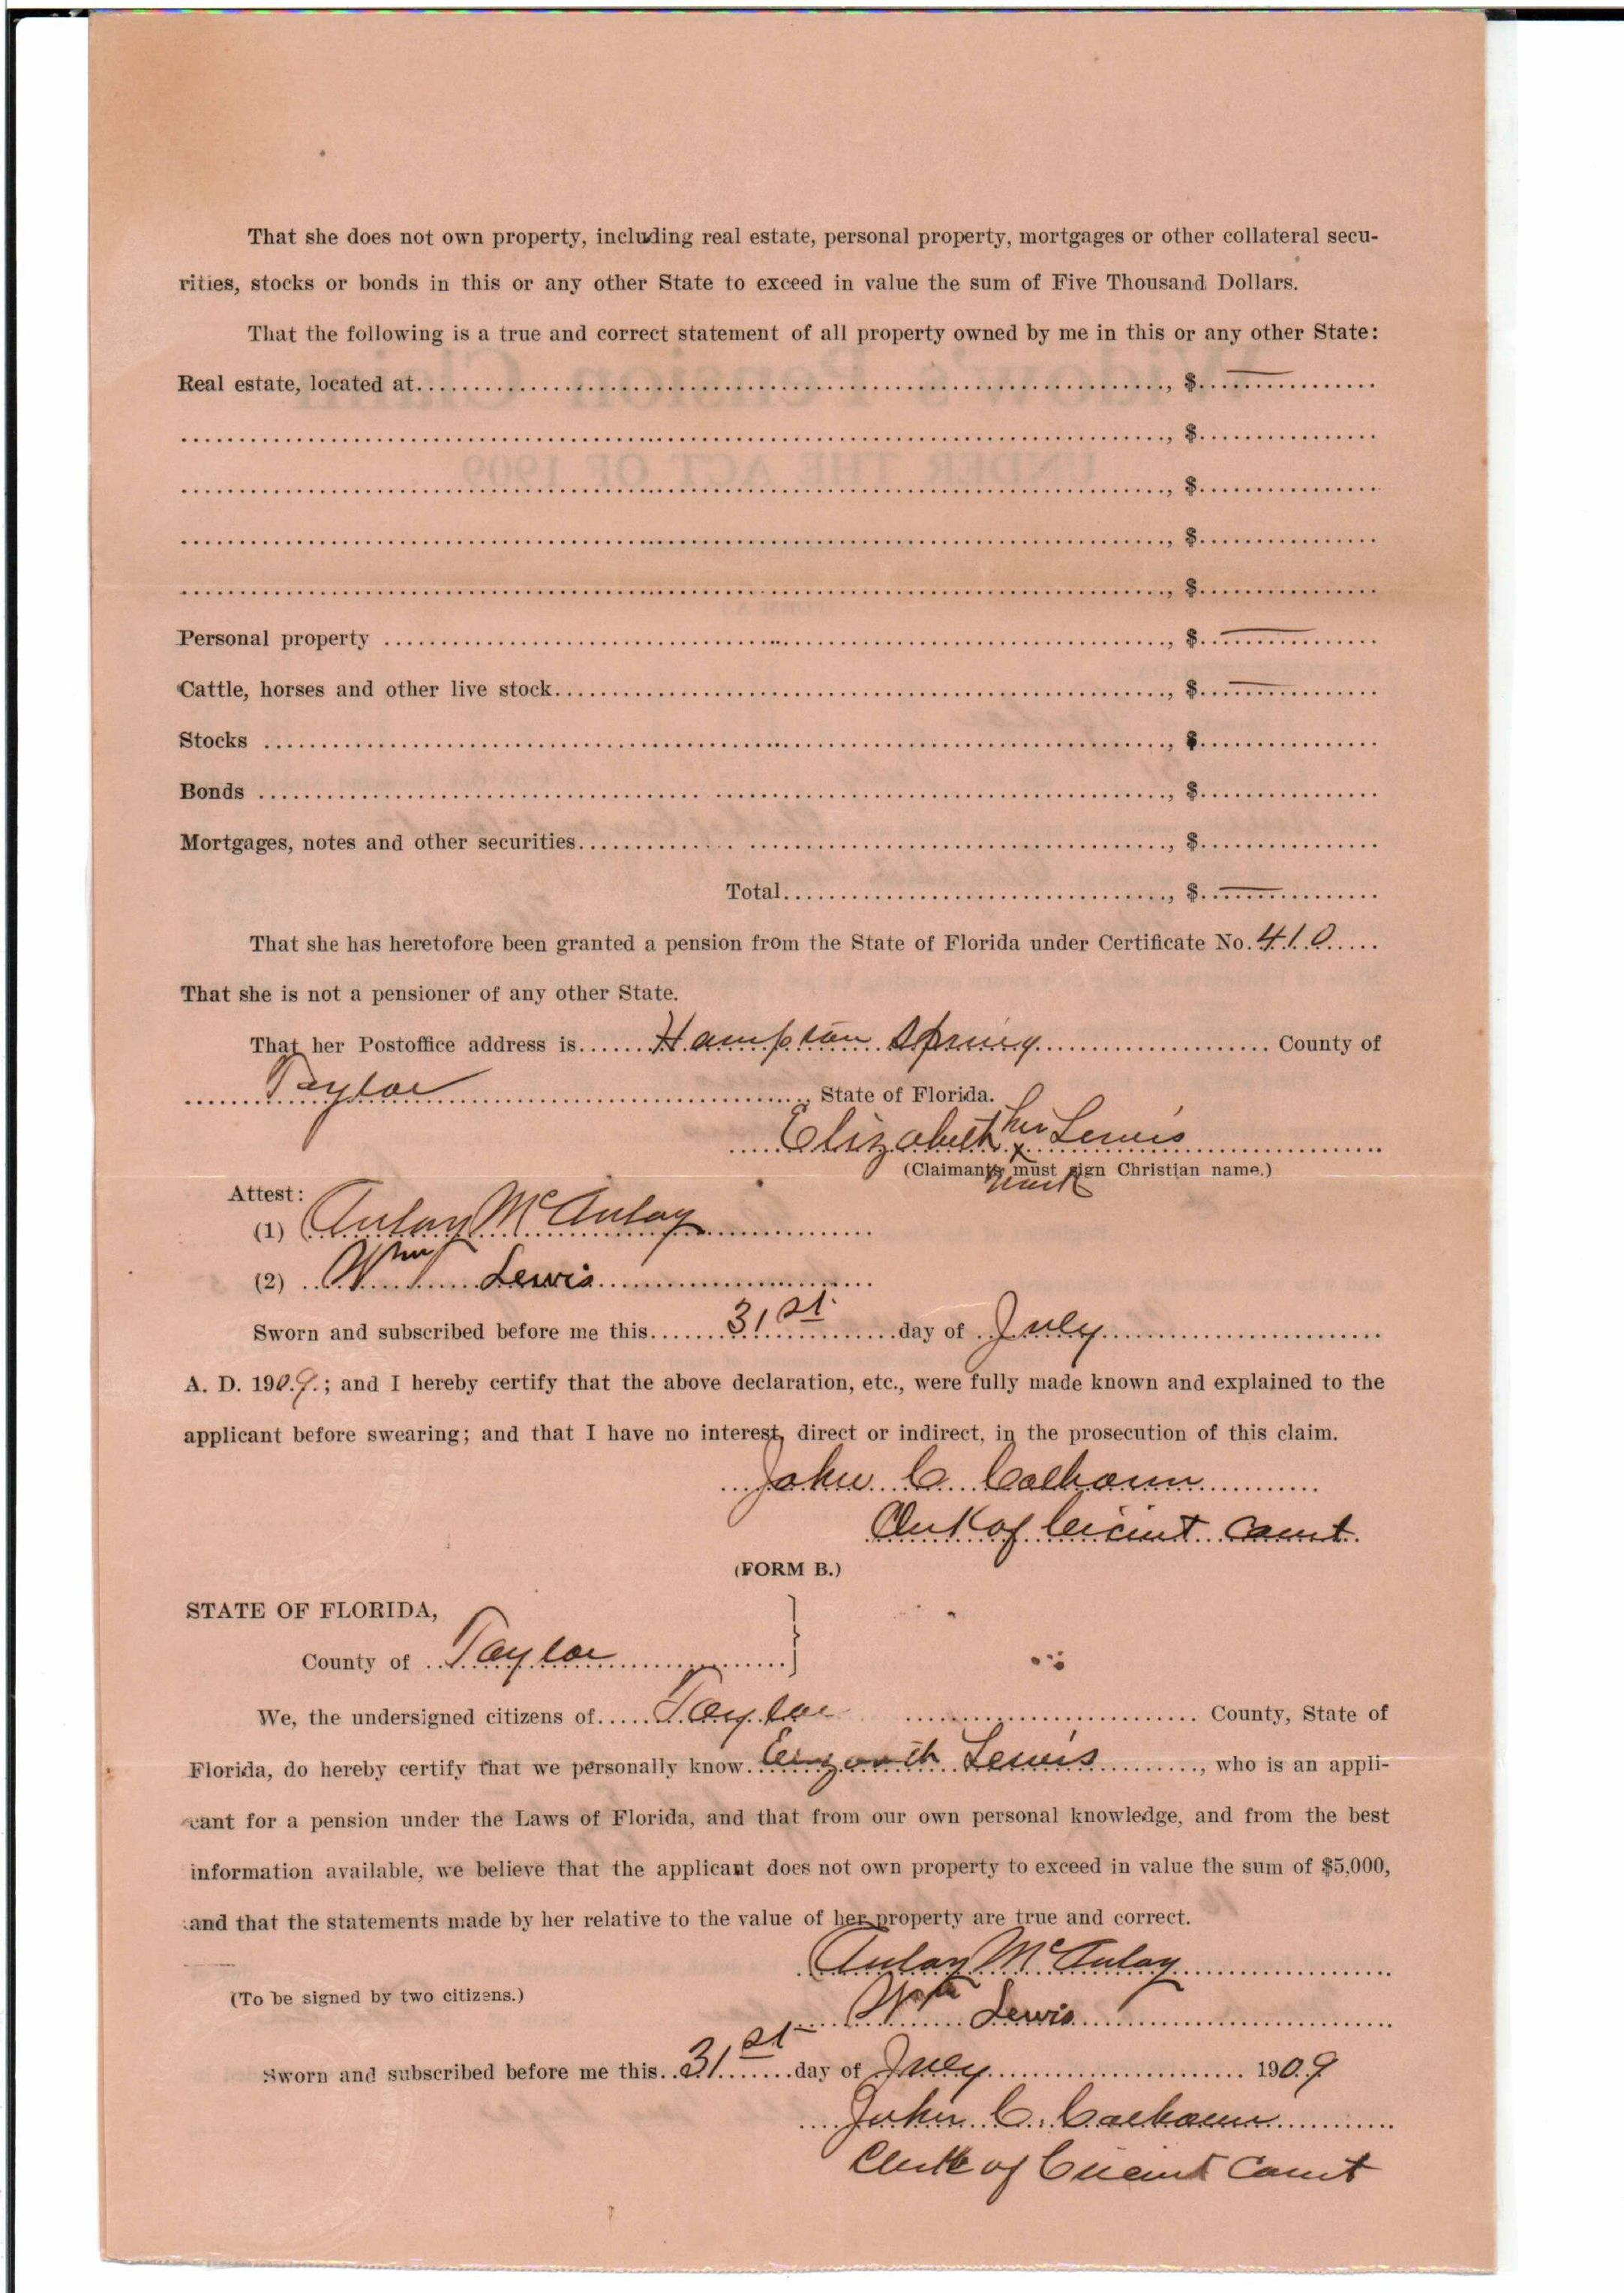 That she does not own property, including real estate, personal property, mortgages or other collateral secu-
rities, stocks or bonds in this or any other State to exceed in value the sum of Five Thousand Dollars.
That the following is a true and correct statement of all property owned by me in this or any other State:
Real estate, located at........................, $............
........................, $............
........................, $............
........................, $............
........................, $............
Personal property ........................, $............
Cattle, horses and other live stock........................, $............
Stocks ........................, $............
Bonds ........................, $............
Mortgages, notes and other securities........................, $............
Total........................, $............
That she has heretofore been granted a pension from the State of Florida under Certificate No. 410
That she is not a pensioner of any other State.
That her Postoffice address is Hampton Spring County of
Taylor, State of Florida.
Elizabeth her x mark Lewis
(Claimants must sign Christian name.)
Attest:
(1) Aulay McAulay
(2) Wm Lewis
Sworn and subscribed before me this 31st day of July
A. D. 1909; and I hereby certify that the above declaration, etc., were fully made known and explained to the
applicant before swearing; and that I have no interest, direct or indirect, in the prosecution of this claim.
John C. Calhoun
Clerk of Circuit Court
(FORM B.)
STATE OF FLORIDA,
County of Taylor
We, the undersigned citizens of Taylor County, State of
Florida, do hereby certify that we personally know Elizabeth Lewis, who is an appli-
cant for a pension under the Laws of Florida, and that from our own personal knowledge, and from the best
information available, we believe that the applicant does not own property to exceed in value the sum of $5,000,
and that the statements made by her relative to the value of her property are true and correct.
Aulay McAulay
(To be signed by two citizens.)
Wm Lewis
Sworn and subscribed before me this 31st day of July 1909
John C. Calhoun
Clerk of Circuit Court